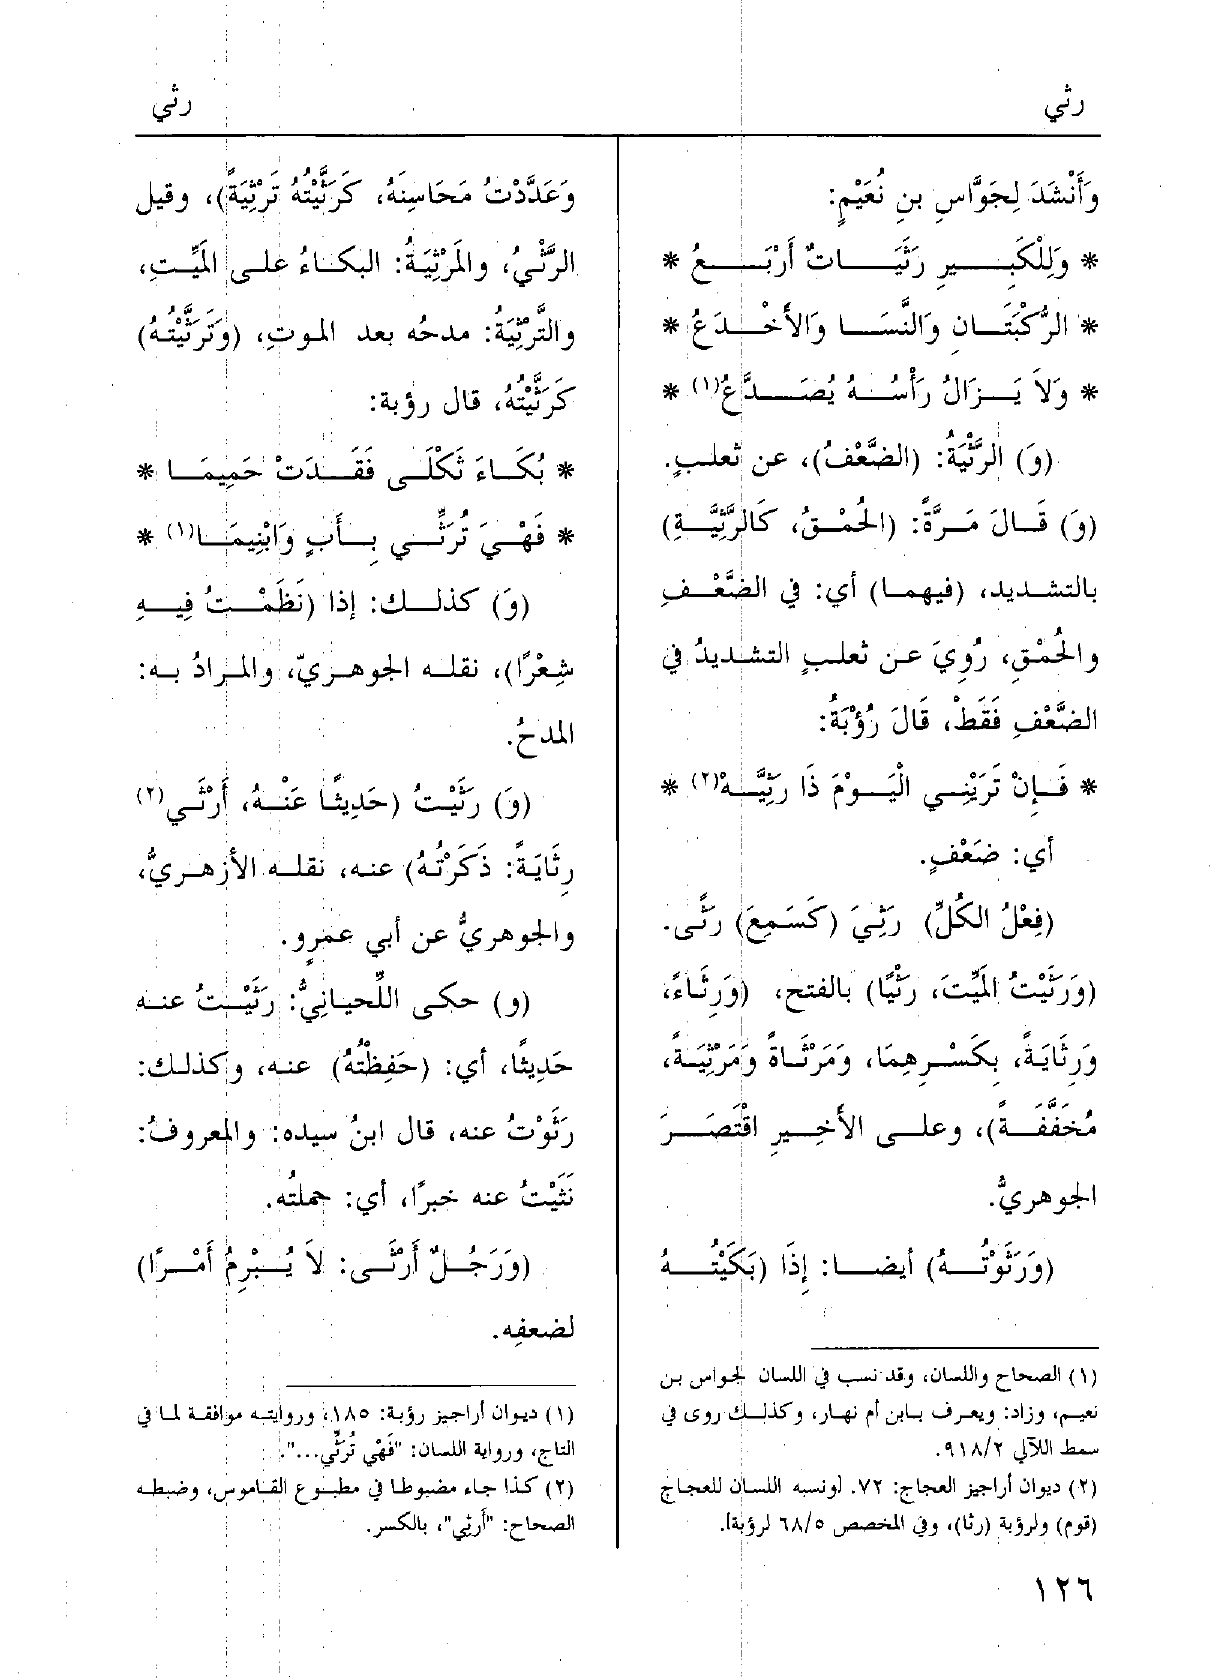 رثي
رثي
وَأَنْشَدَ لِجَوَّاسِ بنِ نُعَيْمٍ:
* وَلِلْكَبِيرِ رَثَيَاتٌ أَرْبَعُ *
* الرُّكْبَتَانِ وَالنَّسَا وَالأَخْدَعُ *
* وَلاَ يَزَالُ رَأْسُهُ يُصَدَّعُ(١) *
(وَ) الرَّثْيَةُ: (الضَّعْفُ)، عن ثعلبٍ.
(وَ) قَالَ مَرَّةً: (الحُمْقُ، كَالرَّثِيَّةِ)
بالتشديد، (فيهما) أي: في الضَّعْفِ
والحُمْقِ، رُوِيَ عن ثعلبٍ التشديدُ في
الضَّعْفِ فَقَطْ، قَالَ رُؤْبَةُ:
* فَإِنْ تَرَيْنِي الْيَوْمَ ذَا رَثِيَّهْ(٢) *
أي: ضَعْفٍ.
(فِعْلُ الكُلِّ) رَثِيَ (كَسَمِعَ) رَثًى.
(وَرَثَيْتُ المَيِّتَ، رَثْيًا) بالفتح، (وَرِثَاءً،
وَرِثَايَةً، بِكَسْرِهِمَا، وَمَرْثَاةً وَمَرْثِيَةً،
مُخَفَّفَةً)، وعلى الأخيرِ اقْتَصَرَ
الجوهريُّ.
(وَرَثَوْتُهُ) أيضا: إِذَا (بَكَيْتُهُ
وَعَدَّدْتُ مَحَاسِنَهُ، كَرَثَّيْتُهُ تَرْثِيَةً)، وقيل
الرَّثْيُ، والمَرْثِيَةُ: البكاءُ على المَيِّتِ،
والتَّرْثِيَةُ: مدحُه بعد الموتِ، (وَتَرَثَّيْتُهُ)
كَرَثَّيْتُهُ، قال رؤبة:
* بُكَاءَ ثَكْلَى فَقَدَتْ حَمِيمَا *
* فَهْيَ تُرَثِّي بِأَبٍ وَابْنِيمَا(١) *
(وَ) كذلك: إذا (نَظَمْتُ فِيهِ
شِعْرًا)، نقله الجوهريّ، والمرادُ به:
المدحُ.
(وَ) رَثَيْتُ (حَدِيثًا عَنْهُ، أَرْثَي(٢)
رِثَايَةً: ذَكَرْتُهُ) عنه، نقله الأزهريُّ،
والجوهريُّ عن أبي عمرٍو.
(و) حكى اللِّحيانيُّ: رَثَيْتُ عنه
حَدِيثًا، أي: (حَفِظْتُهُ) عنه، وكذلك:
رَثَوْتُ عنه، قال ابنُ سيده: والمعروفُ:
نَثَيْتُ عنه خبرًا، أي: حملتُه.
(وَرَجُلٌ أَرْثَى: لاَ يُبْرِمُ أَمْرًا)
لضعفِه.
(١) الصحاح واللسان، وقد نسب في اللسان لجواس بن
نعيم، وزاد: ويعرف بابن أم نهار، وكذلك روى في
سمط اللآلي ٩١٨/٢.
(٢) ديوان أراجيز العجاج: ٧٢. [ونسبه اللسان للعجاج
(قوم) ولرؤبة (رثا)، وفي المخصص ٦٨/٥ لرؤبة].
(١) ديوان أراجيز رؤبة: ١٨٥، وروايته موافقة لما في
التاج، ورواية اللسان: "فَهْي تُرَثِّي...".
(٢) كذا جاء مضبوطا في مطبوع القاموس، وضبطه
الصحاح: "أَرثِي"، بالكسر.
١٢٦